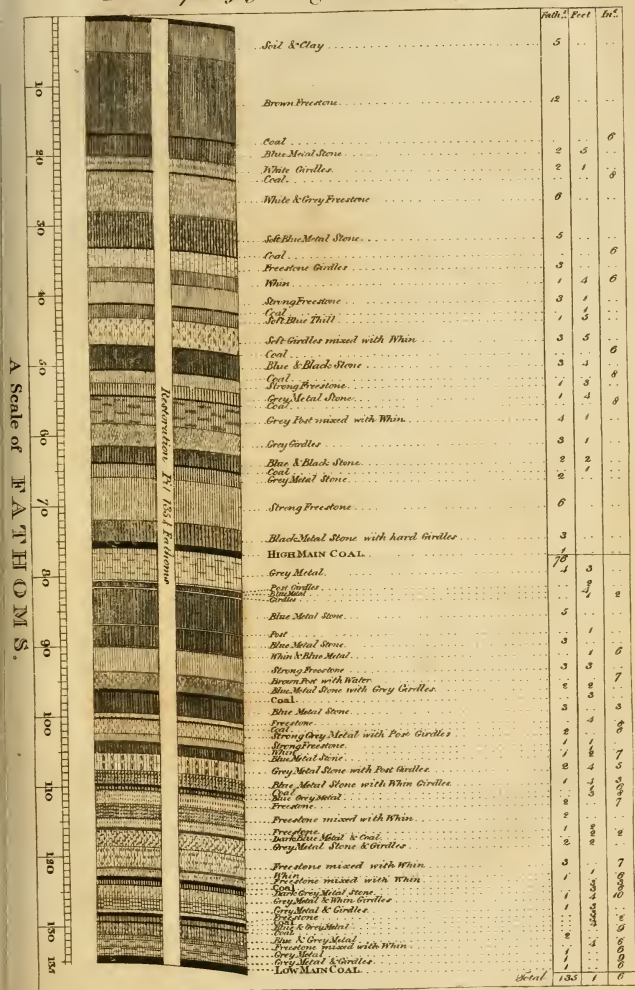 Fath.s Feet In.s
Soil & Clay 5
Brown Freestone 12
Coal 6
Blue Metal Stone 2 5
White Girdles 2 1
Coal 8
White & Grey Freestone 6
Soft Blue Metal Stone 5
Coal 6
Freestone Girdles 3
Whin 1 4 6
Strong Freestone 3 1
Coal 1
Soft Blue Thill 1 5
Soft Girdles mixed with Whin 3 5
Coal 6
Blue & Black Stone 3 4
Coal 8
Strong Freestone 1 3
Grey Metal Stone 1 4
Coal 8
Grey Post mixed with Whin 4 1
Grey Girdles 3 1
Blue & Black Stone 2 2
Coal 1
Grey Metal Stone 2
Strong Freestone 6
Black Metal Stone with hard Girdles 3
HIGH MAIN COAL 1
76
Grey Metal 4 3
Post Girdles 2
Blue Metal 4
Girdles 1 2
Blue Metal Stone 5
Post 1
Blue Metal Stone 3
Whin & Blue Metal 1 6
Strong Freestone 3 3
Brown Post with Water 7
Blue Metal Stone with Grey Girdles 2 2
Coal 3
Blue Metal Stone 3 3
Freestone 4
Coal
Strong Grey Metal with Post Girdles 2
Strong Freestone 1 1
Whin
Blue Metal Stone 1 2 7
Grey Metal Stone with Post Girdles 2 4 5
Blue Metal Stone with Whin Girdles 1 4
Coal
Blue Grey Metal
Freestone 2 7
Freestone mixed with Whin 2
Freestone 1 2
Dark Blue Metal & Coal 2 2
Grey Metal Stone & Girdles 2 2
Freestone mixed with Whin 3 7
Whin 1
Freestone mixed with Whin
Coal
Dark Grey Metal Stone
Grey Metal & Whin Girdles 1 4 10
Grey Metal & Girdles 1
Freestone
Coal
Blue & Grey Metal
Coal 9
Blue & Grey Metal 2
Freestone mixed with Whin 4 6
Grey Metal 1
Grey Metal & Girdles 1 9
LOW MAIN COAL 1 6
Total 135 1 6
A Scale of FATHOMS.
10
20
30
40
50
60
70
80
90
100
110
120
130
135
Restoration Pit 135½ Fathoms